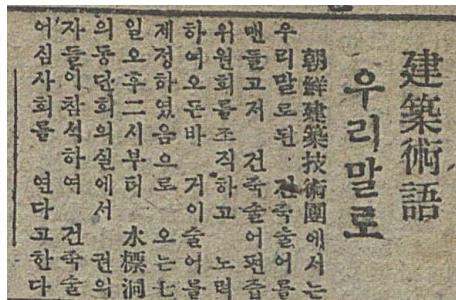 建築術語
우리말로
朝鮮建築技術團에서는
우리말로된 건축술어를
맨들고저 건축술어편즙
위원회를조직하고 노력
하여오든바 거이술어를
제정하였음으로 오는七
일오후二시부터 水標洞
의동단회의실에서 권의
자들이참석하여 건축술
어심사회를 연다고한다